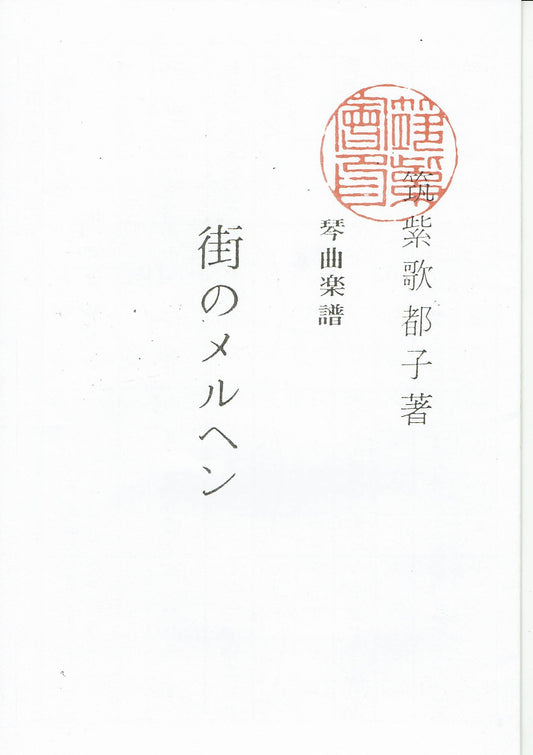 筑紫歌都子著
琴曲楽譜
街のメルヘン